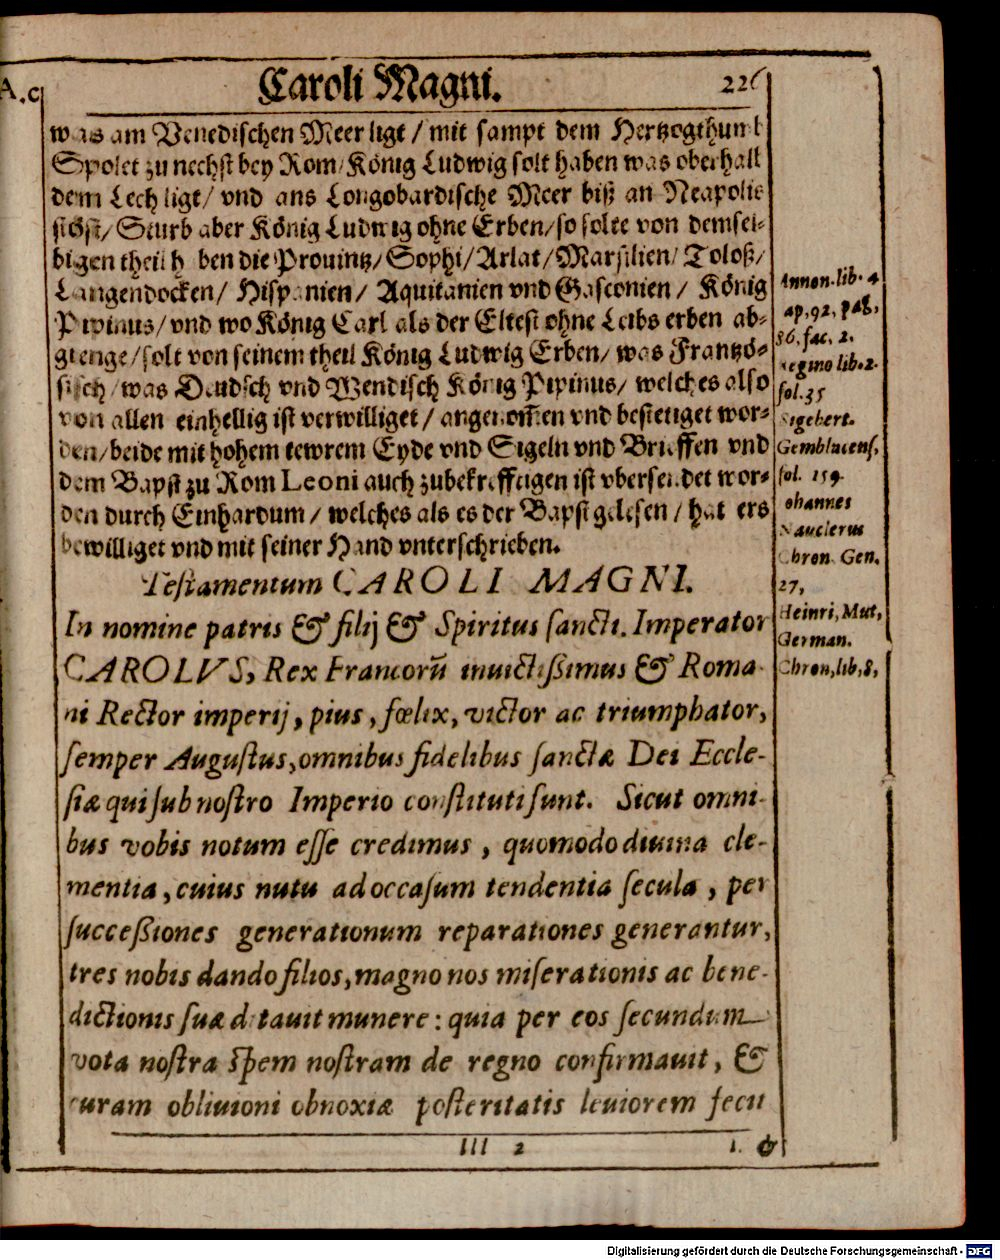 A.c
Caroli Magni. 226
was am Venedischen Meer ligt / mit sampt dem Hertzogthumb
Spolet zu nechst bey Rom / König Ludwig solt haben was oberhalb
dem Lech ligt / vnd ans Longobardische Meer biß an Neapolis
stöst / Sturb aber König Ludwig ohne Erben / so solte von demsel-
bigen theil haben die Prouintz / Sophi / Arlat / Marsilien / Toloß /
Langendocken / Hispanien / Aquitanien vnd Gasconien / König
Pipinus / vnd wo König Carl als der Eltest ohne Leibs erben ab-
gienge / solt von seinem theil König Ludwig Erben / was Frantzö-
sisch / was Deudsch vnd Wendisch König Pipinus / welches also
von allen einhellig ist verwilliget / angenom̃en vnd bestetiget wor-
den / beide mit hohem tewrem Eyde vnd Sigeln vnd Brieffen vnd
dem Bapst zu Rom Leoni auch zubekrefftigen ist vbersendet wor-
den durch Einhardum / welches als es der Bapst gelesen / hat ers
bewilliget vnd mit seiner Hand vnterschrieben.
Testamentum CAROLI MAGNI.
In nomine patris & filij & Spiritus sancti. Imperator
CAROLVS, Rex Francorũ inuictißimus & Roma-
ni Rector imperij, pius, fœlix, victor ac triumphator,
semper Augustus, omnibus fidelibus sanctæ Dei Eccle-
siæ qui sub nostro Imperio constituti sunt. Sicut omni-
bus vobis notum esse credimus, quomodo diuina cle-
mentia, cuius nutu ad occasum tendentia secula, per
succeßiones generationum reparationes generantur,
tres nobis dando filios, magno nos miserationis ac bene-
dictionis suæ ditauit munere: quia per eos secundum
vota nostra spem nostram de regno confirmauit, &
curam obliuioni obnoxiæ posteritatis leuiorem fecit
lll 2 1. &
Annon. lib. 4
ap, 92, pag,
86. fac. 2.
Regino lib. 2.
fol. 35
Sigebert.
Gemblacens,
fol. 159.
Iohannes
Nauclerus
Chron. Gen.
27,
Heinri, Mut,
German.
Chron, lib, 8,
Digitalisierung gefördert durch die Deutsche Forschungsgemeinschaft - DFG